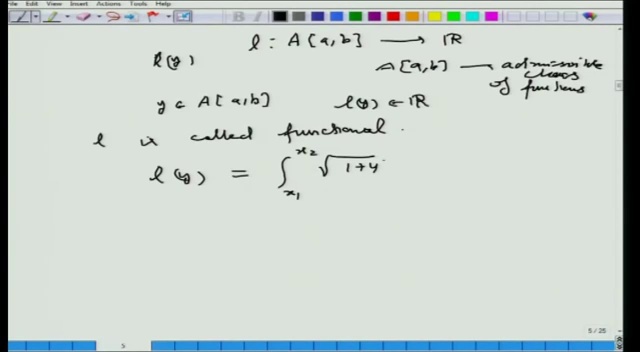 File Edit View Insert Actions Tools Help
l : A[a,b] → ℝ
l(y)
A[a,b] — admissible class of functions
y ∈ A[a,b] l(y) ∈ ℝ
l is called functional.
l(y) = ∫_{x₁}^{x₂} √(1+y
5 / 25
5